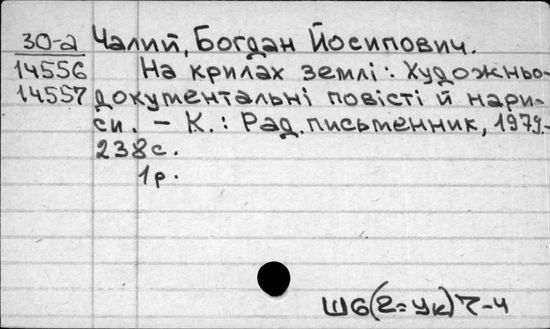 30-а Чалий, Богдан Йосипович.
14556 На крилах землі: Художньо-
14557 документальні повісті й нари-
си. – К.: Рад. письменник, 1979.-
238 с.
1 р.
Ш6(2=Ук)7-4